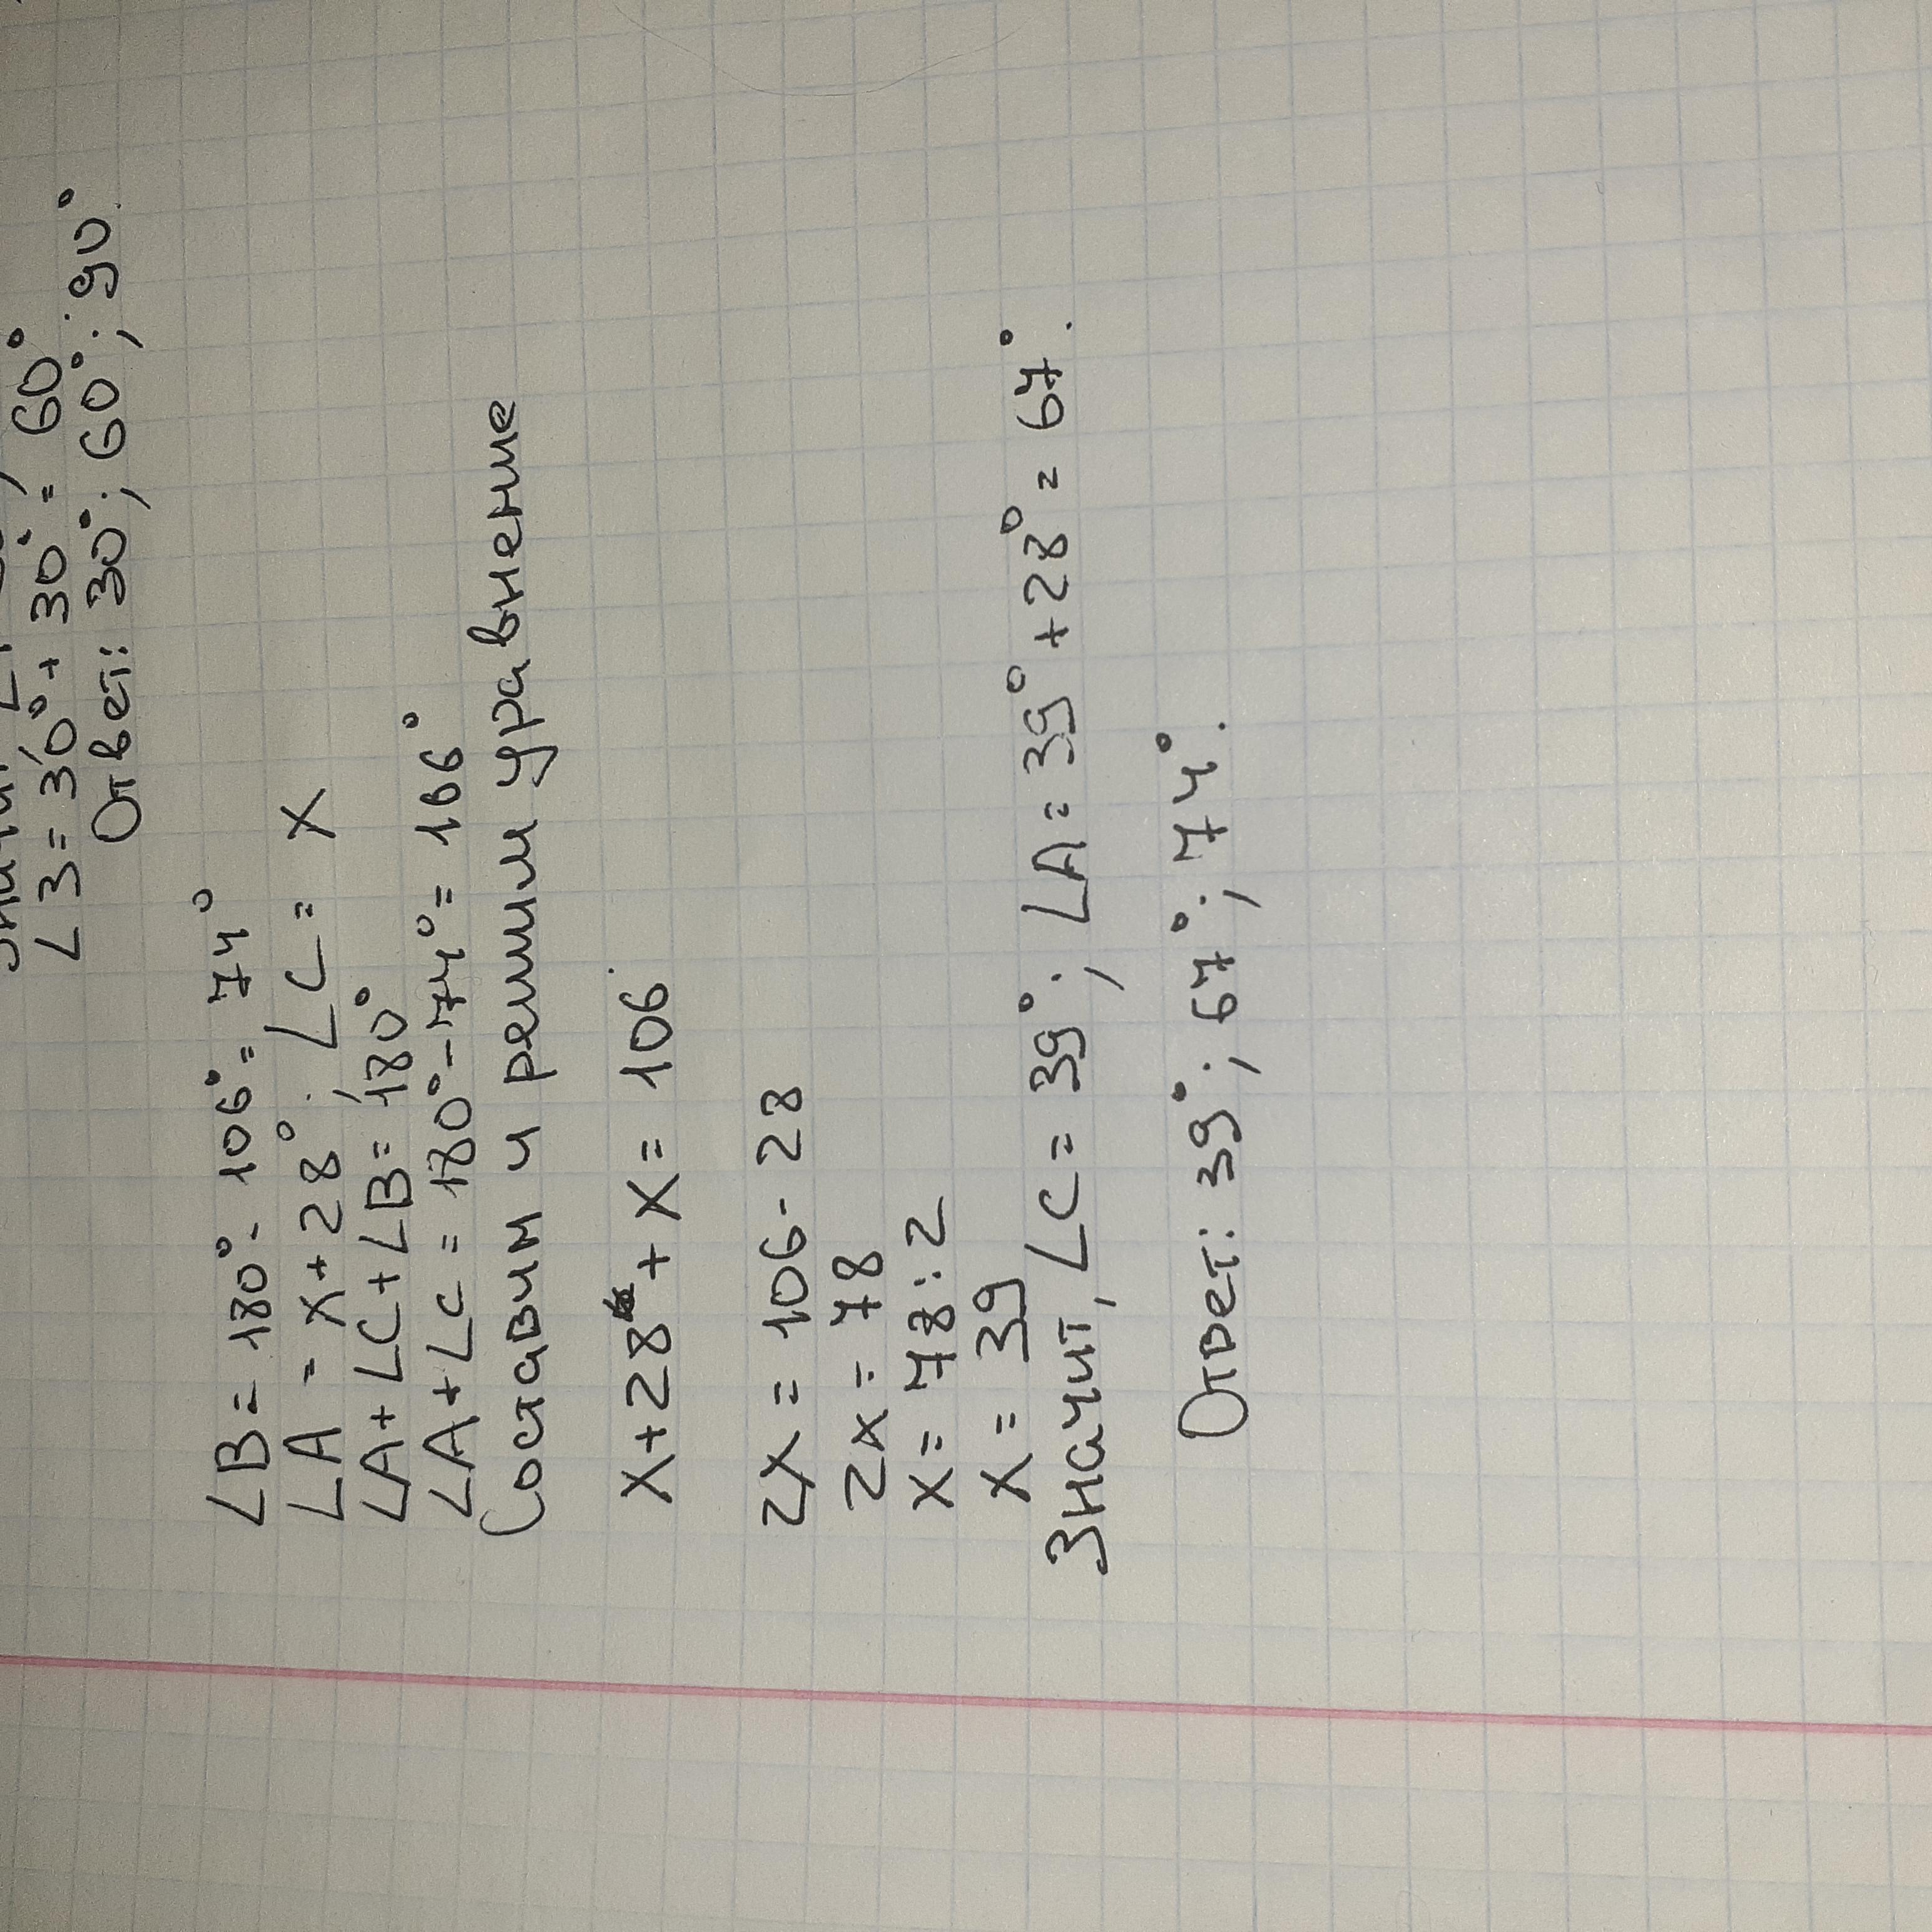 ∠3 = 30° + 30° = 60°
Ответ: 30°; 60°; 90°.
∠B = 180° - 106° = 74°
∠A = x + 28°; ∠C = x
∠A + ∠C + ∠B = 180°
∠A + ∠C = 180° - 74° = 106°
Составим и решим уравнение
x + 28 + x = 106
2x = 106 - 28
2x = 78
x = 78 : 2
x = 39
Значит, ∠C = 39°; ∠A = 39° + 28° = 67°.
Ответ: 39°; 67°; 74°.